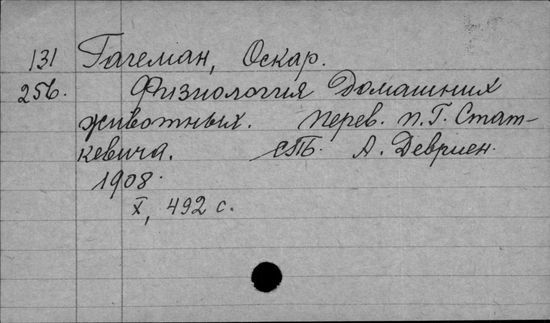 131 Гагеман, Оскар.
256. Физиология домашних
животных. Перев. П. Г. Стат-
кевича. СПБ. А. Девриен.
1908.
X, 492 с.